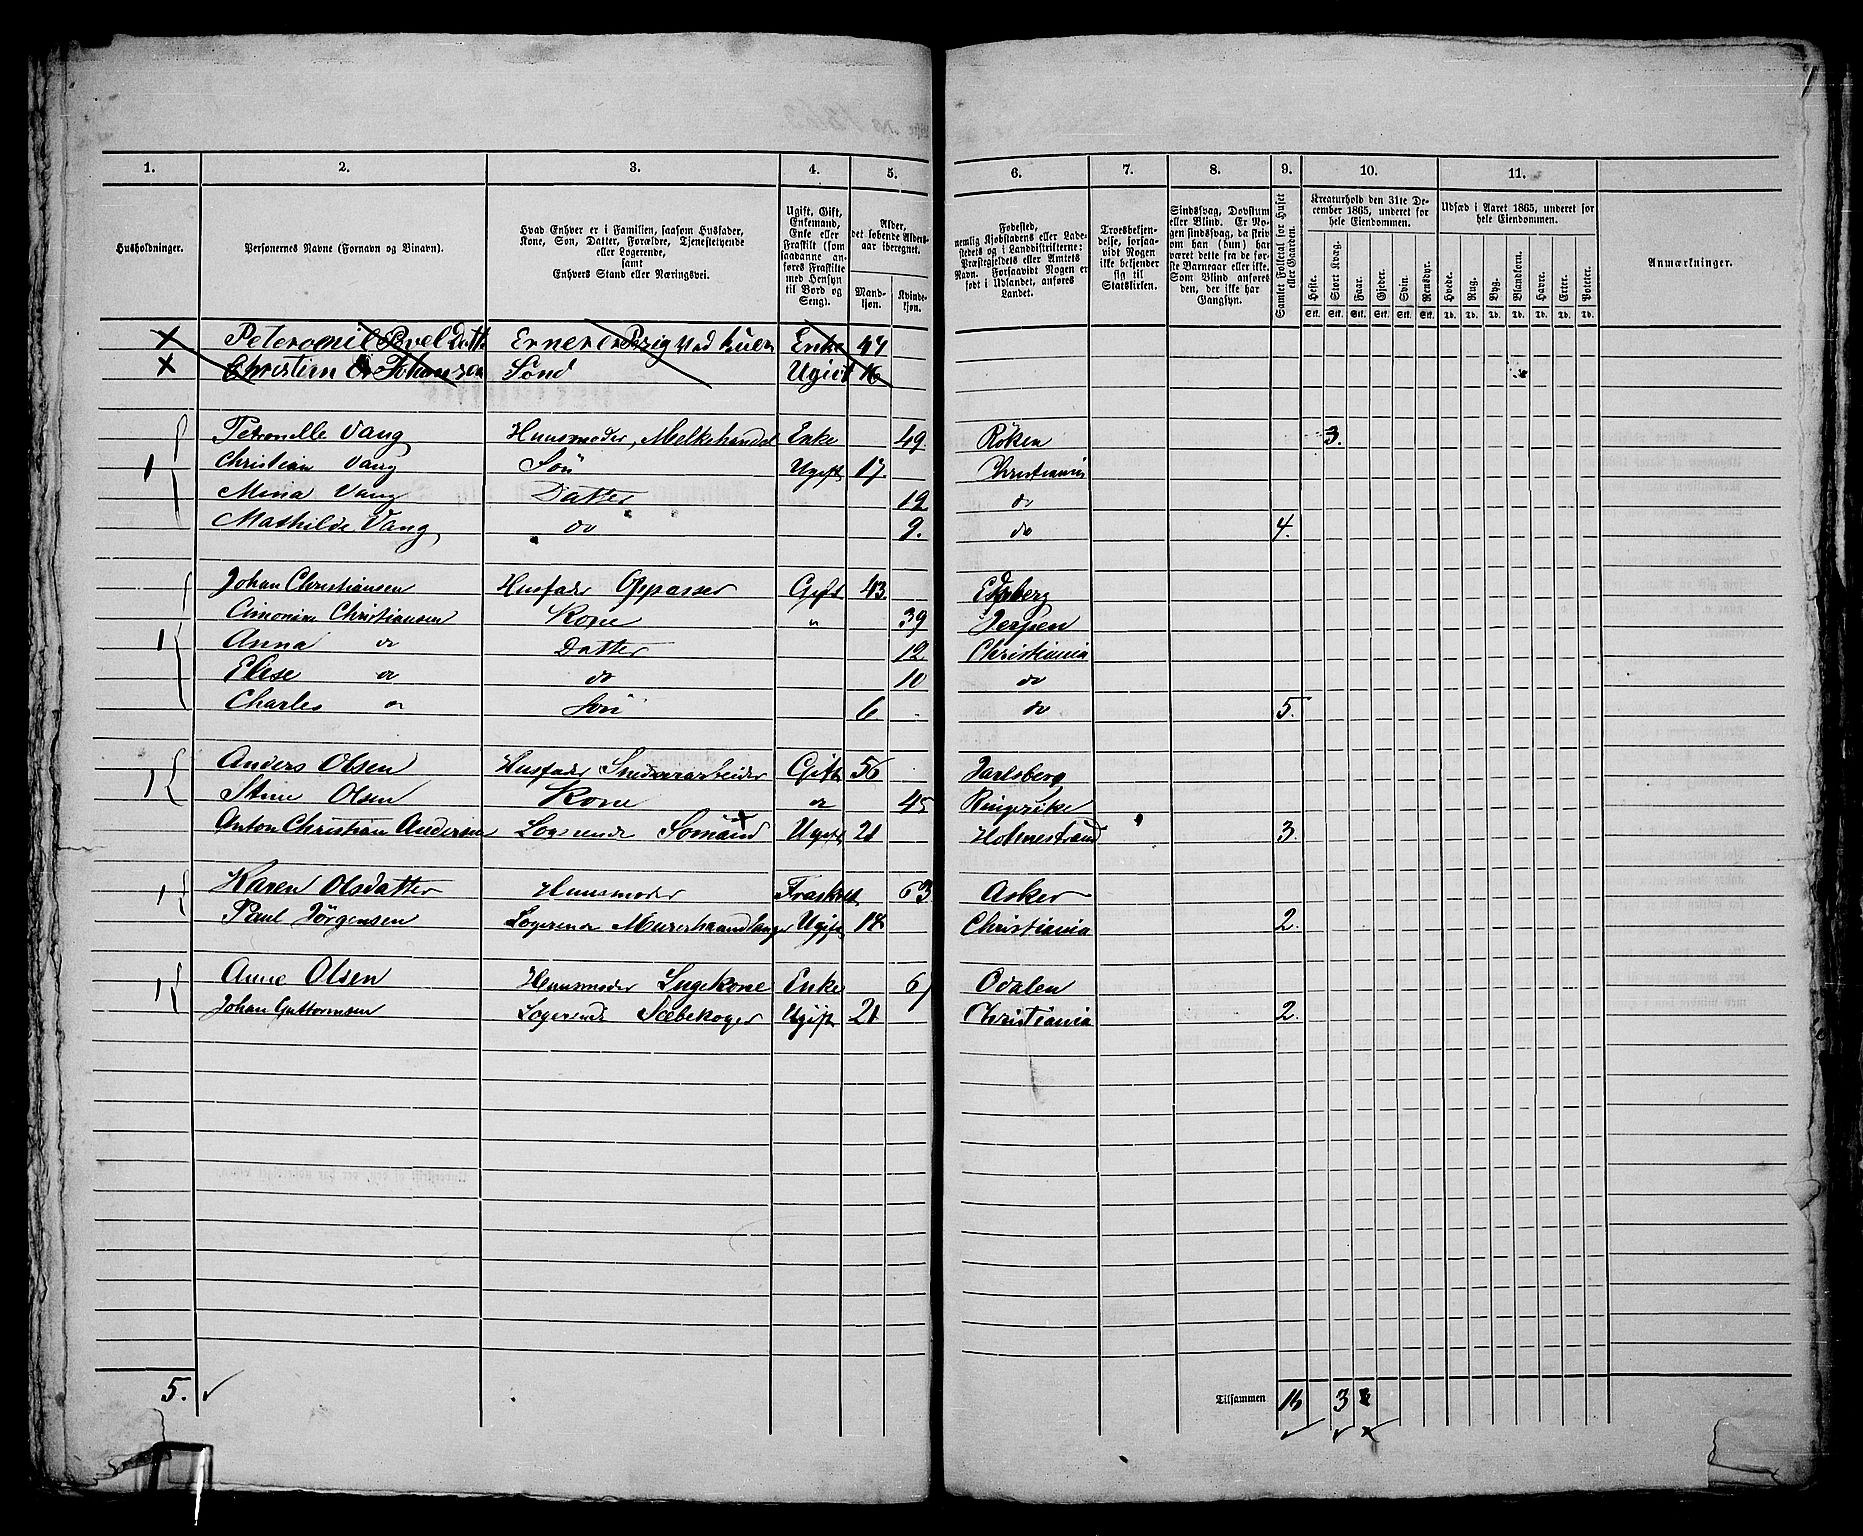 1. 2. 3. 4. 5. 6. 7. 8. 9. 10. 11.
Husholdninger.
Personernes Navne (Fornavn og Binavn).
Hvad Enhver er i Familien, saasom Husfader, Kone, Søn, Datter, Forældre, Tjenestetyende eller Logerende, samt Enhvers Stand eller Næringsvei.
Ugift, Gift, Enkemand, Enke eller Fraskilt (som saadanne anføres Fraskilte med Hensyn til Bord og Seng).
Alder, det løbende Aldersaar iberegnet.
Mandkjøn. Kvindekjøn.
Fødested, nemlig Kjøbstadens eller Ladestedets og i Landdistrikterne: Præstegjeldets eller Amtets Navn. Forsaavidt Nogen er født i Udlandet, anføres Landet.
Troesbekjendelse, forsaavidt Nogen ikke bekjender sig til Statskirken.
Sindssvag, Døvstum eller Blind. Er Nogen sindssvag, da skrives om han (hun) har været dette fra de første Barneaar eller ikke. Som Blind anføres den, der ikke har Gangsyn.
Samlet Folketal for Huset eller Gaarden.
Kreaturhold den 31te December 1865, underet for hele Eiendommen.
Heste. Stort Kvæg. Faar. Gjeder. Svin. Rensdyr.
Stk. Stk. Stk. Stk. Stk. Stk.
Udsæd i Aaret 1865, underet for hele Eiendommen.
Hvede. Rug. Byg. Blandkorn. Havre. Erter. Poteter.
Td. Td. Td. Td. Td. Td. Td.
Anmærkninger.
x Enke 47
x Christian Johanson Sønd Ugivt 16
Petronelle Vang Huusmoder, Melkehandel Enke 49. Röken 3.
1 Christian Vang Sön Ugift 17. Christiania
Mina Vang Datter 12 do
Mathilde Vang do 9. do 4.
Johan Christiansen Husfader Oppasser Gift 43. Edsberg
Christiansen Kone " 39 Jerpen
1 Anna do Datter 12 Christiania
Elise do do 10 do
Charles do Sön 6 do 5.
Anders Olsen Husfader Gift 56 Jarlsberg
1 Stine Olsen Kone do 45 Ringerike
Anton Christian Andersen Logerende Sømand x Ugift 21 Holmestrand 3.
1 Karen Olsdatter Huusmoder Fraskilt 63 Asker
Paul Jörgensen Logerende Murerhaandlanger Ugift 18 Christiania 2.
1 Anne Olsen Huusmoder Sygekone Enke 61 Odalen
Johan Guttormsen Logerende Sæbekoger Ugift 21 Christiania 2.
5. Tilsammen 16 3